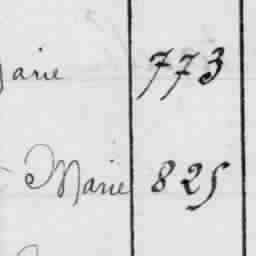 arie 773
Marie 825